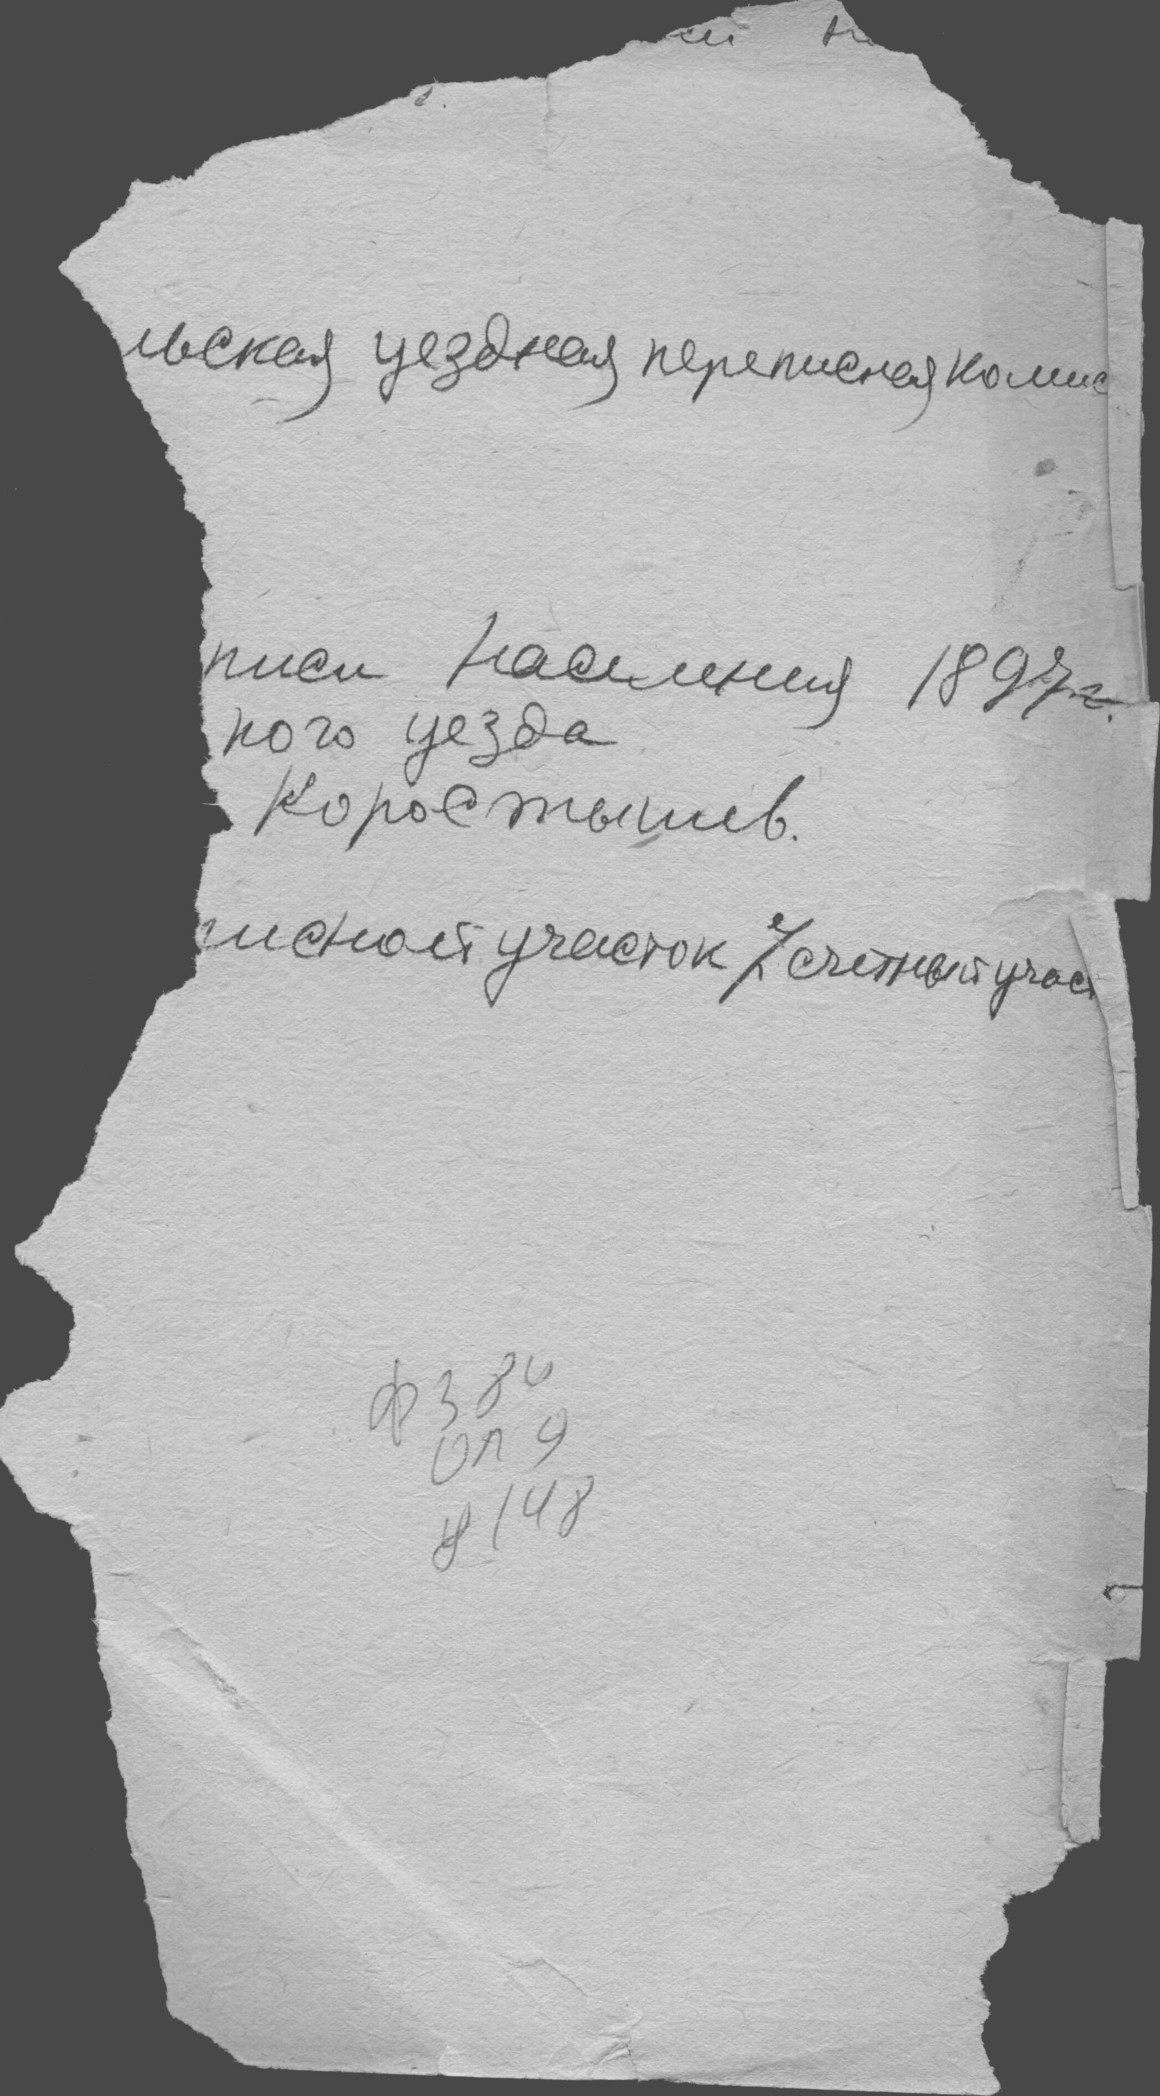 льская уездная переписная комис
писи населения 1897 г.
ного уезда
Коростышев.
писной участок 7 счетный участ
ф 384
оп 9
148